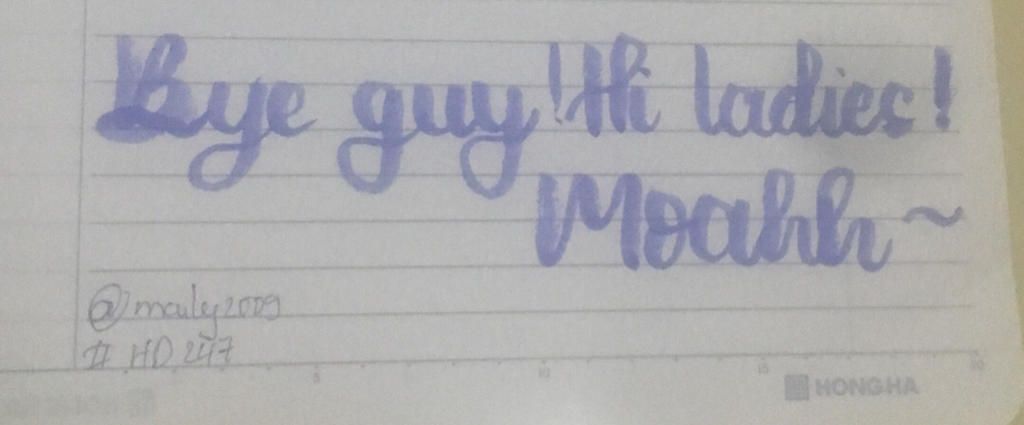 Bye guy! Hi ladies!
Moahh~
@mculy2009
# HD247
5 10 15 20
HONGHA